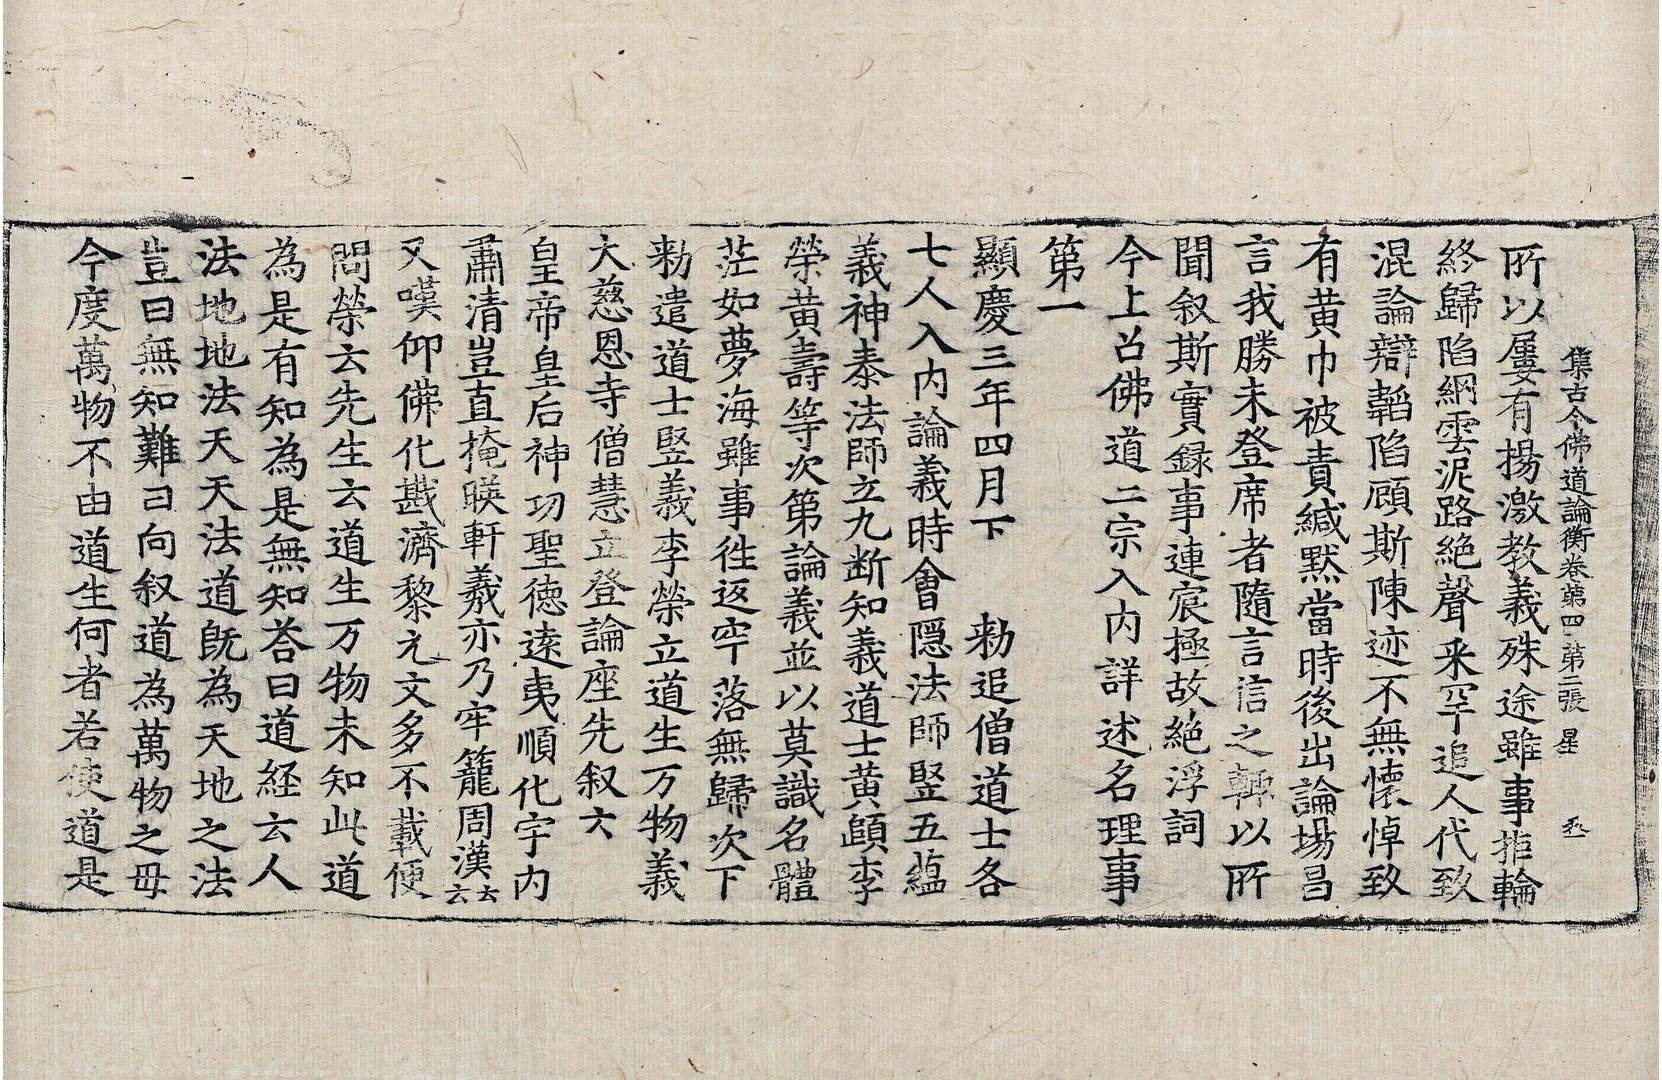 集古今佛道論衡卷第四 第二張 星
所以屢有揚激教義殊途雖事拒輪
終歸陷網雲泥路絶聲采罕追人代致
混論辯韜陷顧斯陳迹不無懷悼致
有黄巾被責緘默當時後出論場昌
言我勝未登席者隨言信之輙以所
聞叙斯實録事連宸極故絶浮詞
今上召佛道二宗入内詳述名理事
第一
顯慶三年四月下 勑追僧道士各
七人入内論義時會隠法師竪五蘊
義神泰法師立九断知義道士黄賾李
榮黄壽等次第論義並以莫識名體
茫如夢海雖事徃返罕落無歸次下
勑遣道士竪義李榮立道生万物義
大慈恩寺僧慧立登論座先叙六
皇帝皇后神功聖徳逺夷順化宇内
肅清豈直掩暎軒羲亦乃牢籠周漢云云
又嘆仰佛化戡濟黎元文多不載便
問榮云先生云道生万物未知此道
為是有知為是無知荅曰道経云人
法地地法天天法道既為天地之法
豈曰無知難曰向叙道為萬物之母
今度萬物不由道生何者若使道是